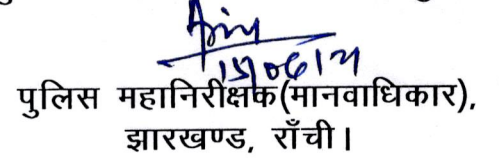 15/06/21
पुलिस महानिरीक्षक(मानवाधिकार),
झारखण्ड, राँची।